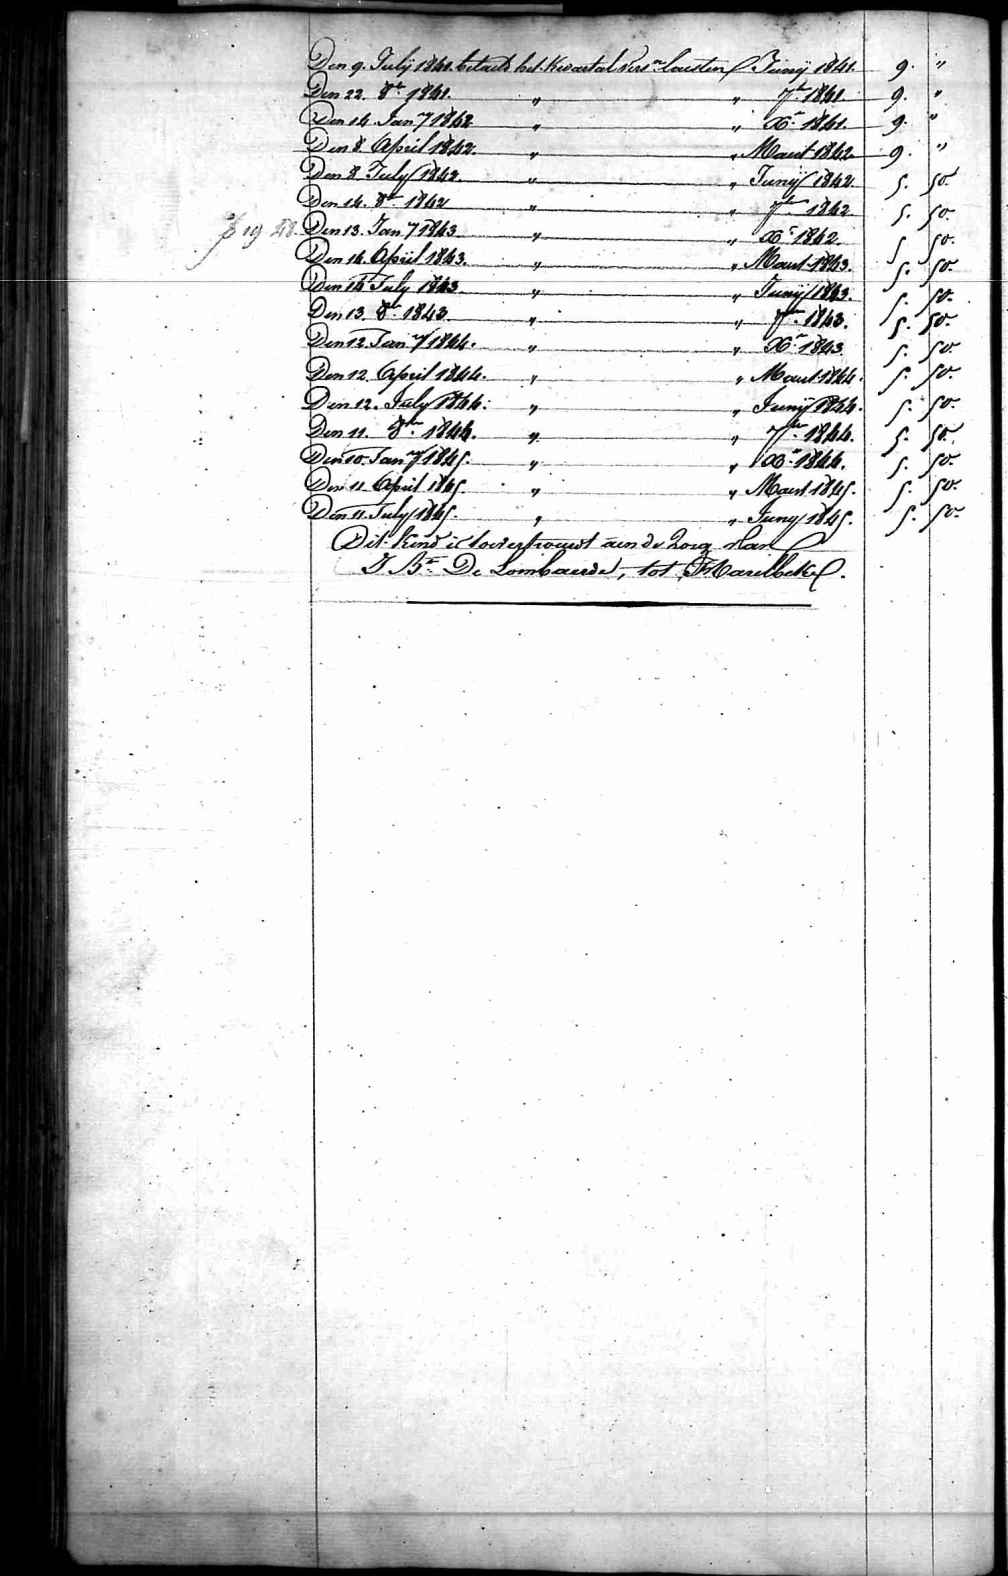 Den 9. July 1841. betaeld het Kwartal vers.n laesten Junij 1841. 9. "
Den 22. 8.r 1841. " " 7.r 1841. 9. "
Den 14. Jan.y 1842 " " X.r 1841. 9. "
Den 8. April 1842. " " Maert 1842 9. "
Den 8. July 1842. " " Junij 1842. 5. 50.
Den 14. 8.r 1842 " " 7.r 1842 5. 50.
Den 13. Jan.y 1843 " " X.r 1842. 5. 50.
Den 14. April 1843. " " Maert 1843. 5. 50.
Den 14 July 1843 " " Junij 1843. 5. 50.
Den 13. 8.r 1843. " " 7.r 1843. 5. 50.
Den 12. Jan.y 1844. " " X.r 1843 5. 50.
Den 12. April 1844. " " Maert 1844. 5. 50.
Den 12. July 1844. " " Junij 1844. 5. 50.
Den 11. 8.r 1844. " " 7.r 1844. 5. 50.
Den 10. Jan.y 1845. " " X.r 1844. 5. 50.
Den 11. April 1845. " " Maert 1845. 5. 50.
Den 11. July 1845. " " Juny 1845. 5. 50.
Dit kind is toevertrouwt aen de zorg van
J. B.te De Lombaerde, tot Harelbeke.